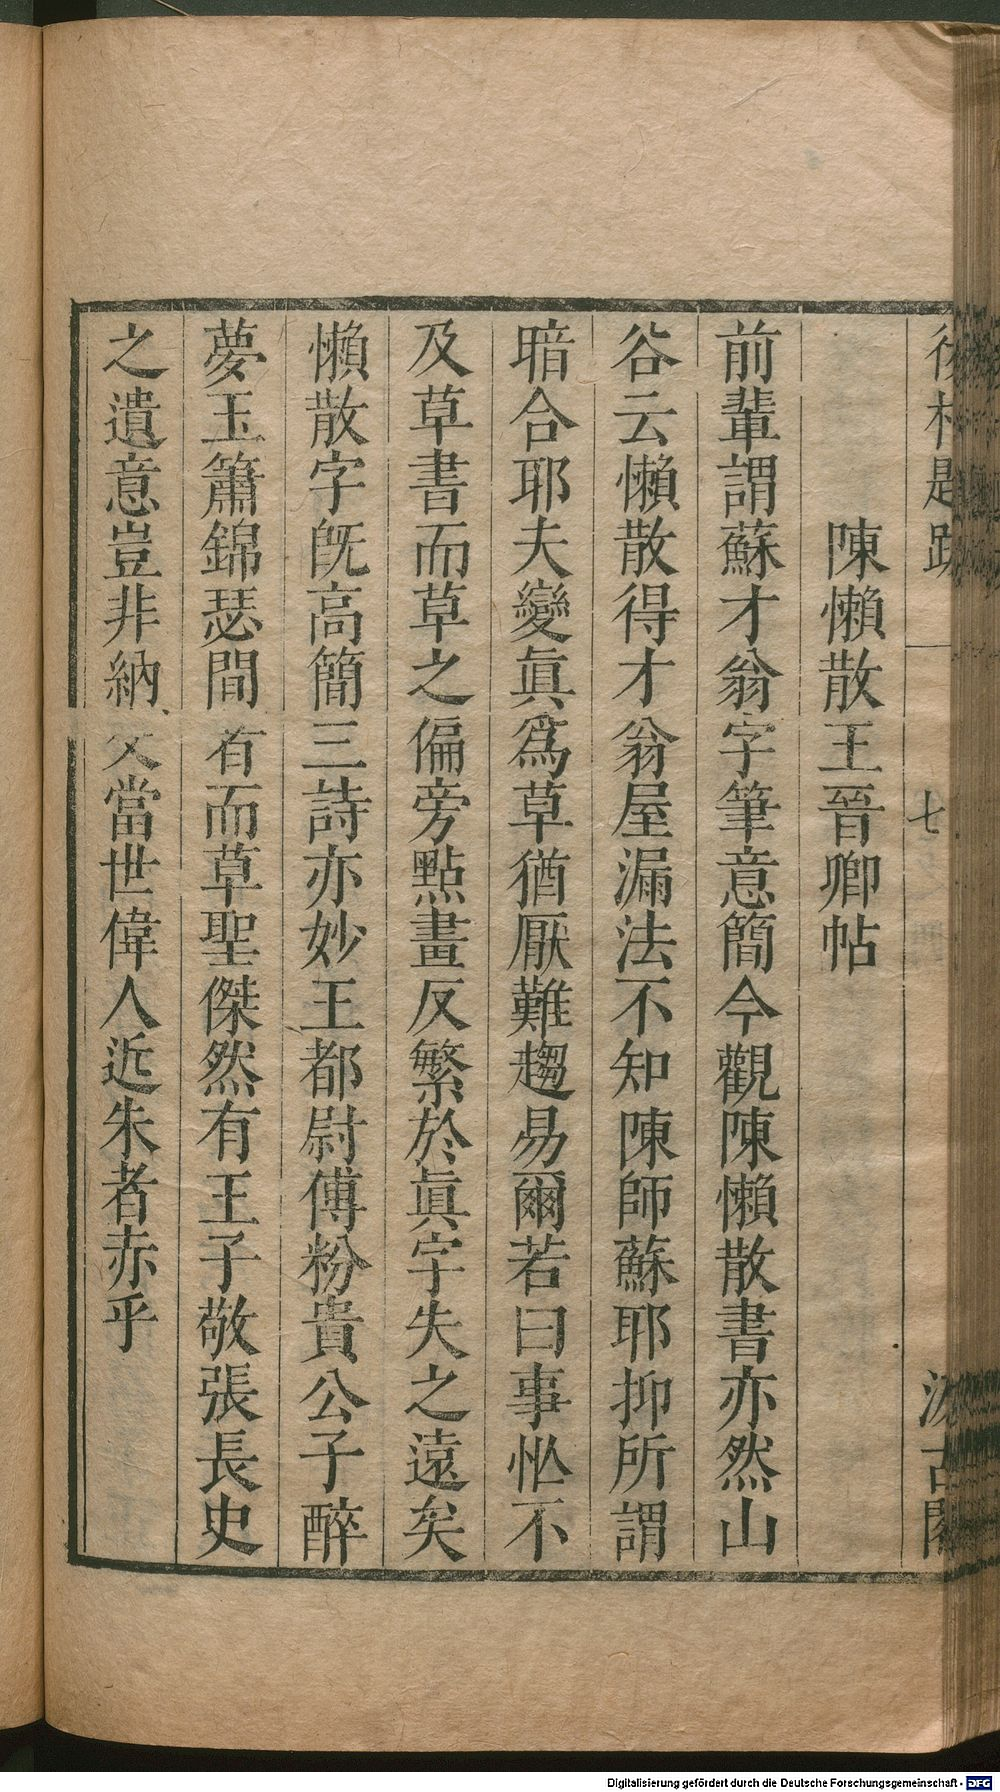 後村題跋 一 七 汲古閣
陳懶散王晉卿帖
前輩謂蘇才翁字筆意簡今觀陳懶散書亦然山
谷云懶散得才翁屋漏法不知陳師蘇耶抑所謂
暗合耶夫變眞爲草猶厭難趨易爾若曰事忙不
及草書而草之偏旁點畫反繁於眞字失之遠矣
懶散字旣高簡三詩亦妙王都尉傅粉貴公子醉
夢玉簫錦瑟間者而草聖傑然有王子敬張長史
之遺意豈非納交當世偉人近朱者赤乎
Digitalisierung gefördert durch die Deutsche Forschungsgemeinschaft - DFG